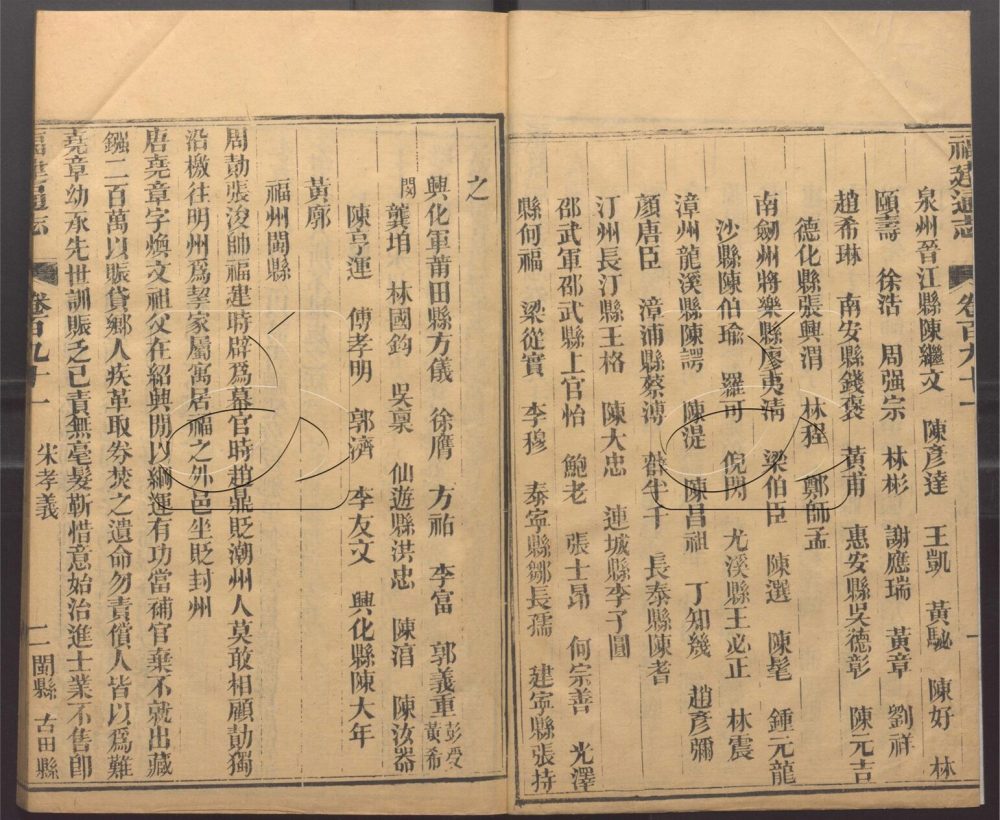 福建通志 卷百九十一 一
泉州晉江縣陳繼文 陳彥達 王凱 黃駜 陳好 林
頤壽 徐浩 周强宗 林彬 謝應瑞 黃章 劉祥
趙希琳 南安縣錢褒 黃甫 惠安縣吳德彰 陳元吉
德化縣張興渭 林程 鄭師孟
南劒州將樂縣廖夷清 梁伯臣 陳選 陳髦 鍾元龍
沙縣陳伯瑜 羅可 倪閃 尤溪縣王必正 林震
漳州龍溪縣陳諤 陳湜 陳昌祖 丁知幾 趙彥彌
顏唐臣 漳浦縣蔡溥 千 長泰縣陳耆
汀州長汀縣王格 陳大忠 連城縣李子圓
邵武軍邵武縣上官怡 鮑老 張士昂 何宗善 光澤
縣何福 梁從實 李穆 泰寧縣鄒長孺 建寧縣張持
之
興化軍莆田縣方儀 徐膺 方祐 李富 郭義重 彭受 黃希
閔 龔㙈 林國鈞 吳稟 仙遊縣洪忠 陳涫 陳汝器
陳亨運 傅孝明 郭濟 李友文 興化縣陳大年
黃廓
福州閩縣
周勛張浚師福建時辟爲幕官時趙鼎貶潮州人莫敢相顧勛獨
沿檄往明州爲挈家屬寓居福之外邑坐貶封州
唐堯章字煥文祖父在紹興閒以綱運有功當補官棄不就出藏
鏹二百萬以賑貸鄉人疾革取券焚之遺命勿責償人皆以爲難
堯章幼承先世訓賑乏已責無毫髮靳惜意始治進士業不售卽
福建通志 卷百九十一 宋孝義 二 閩縣 古田縣